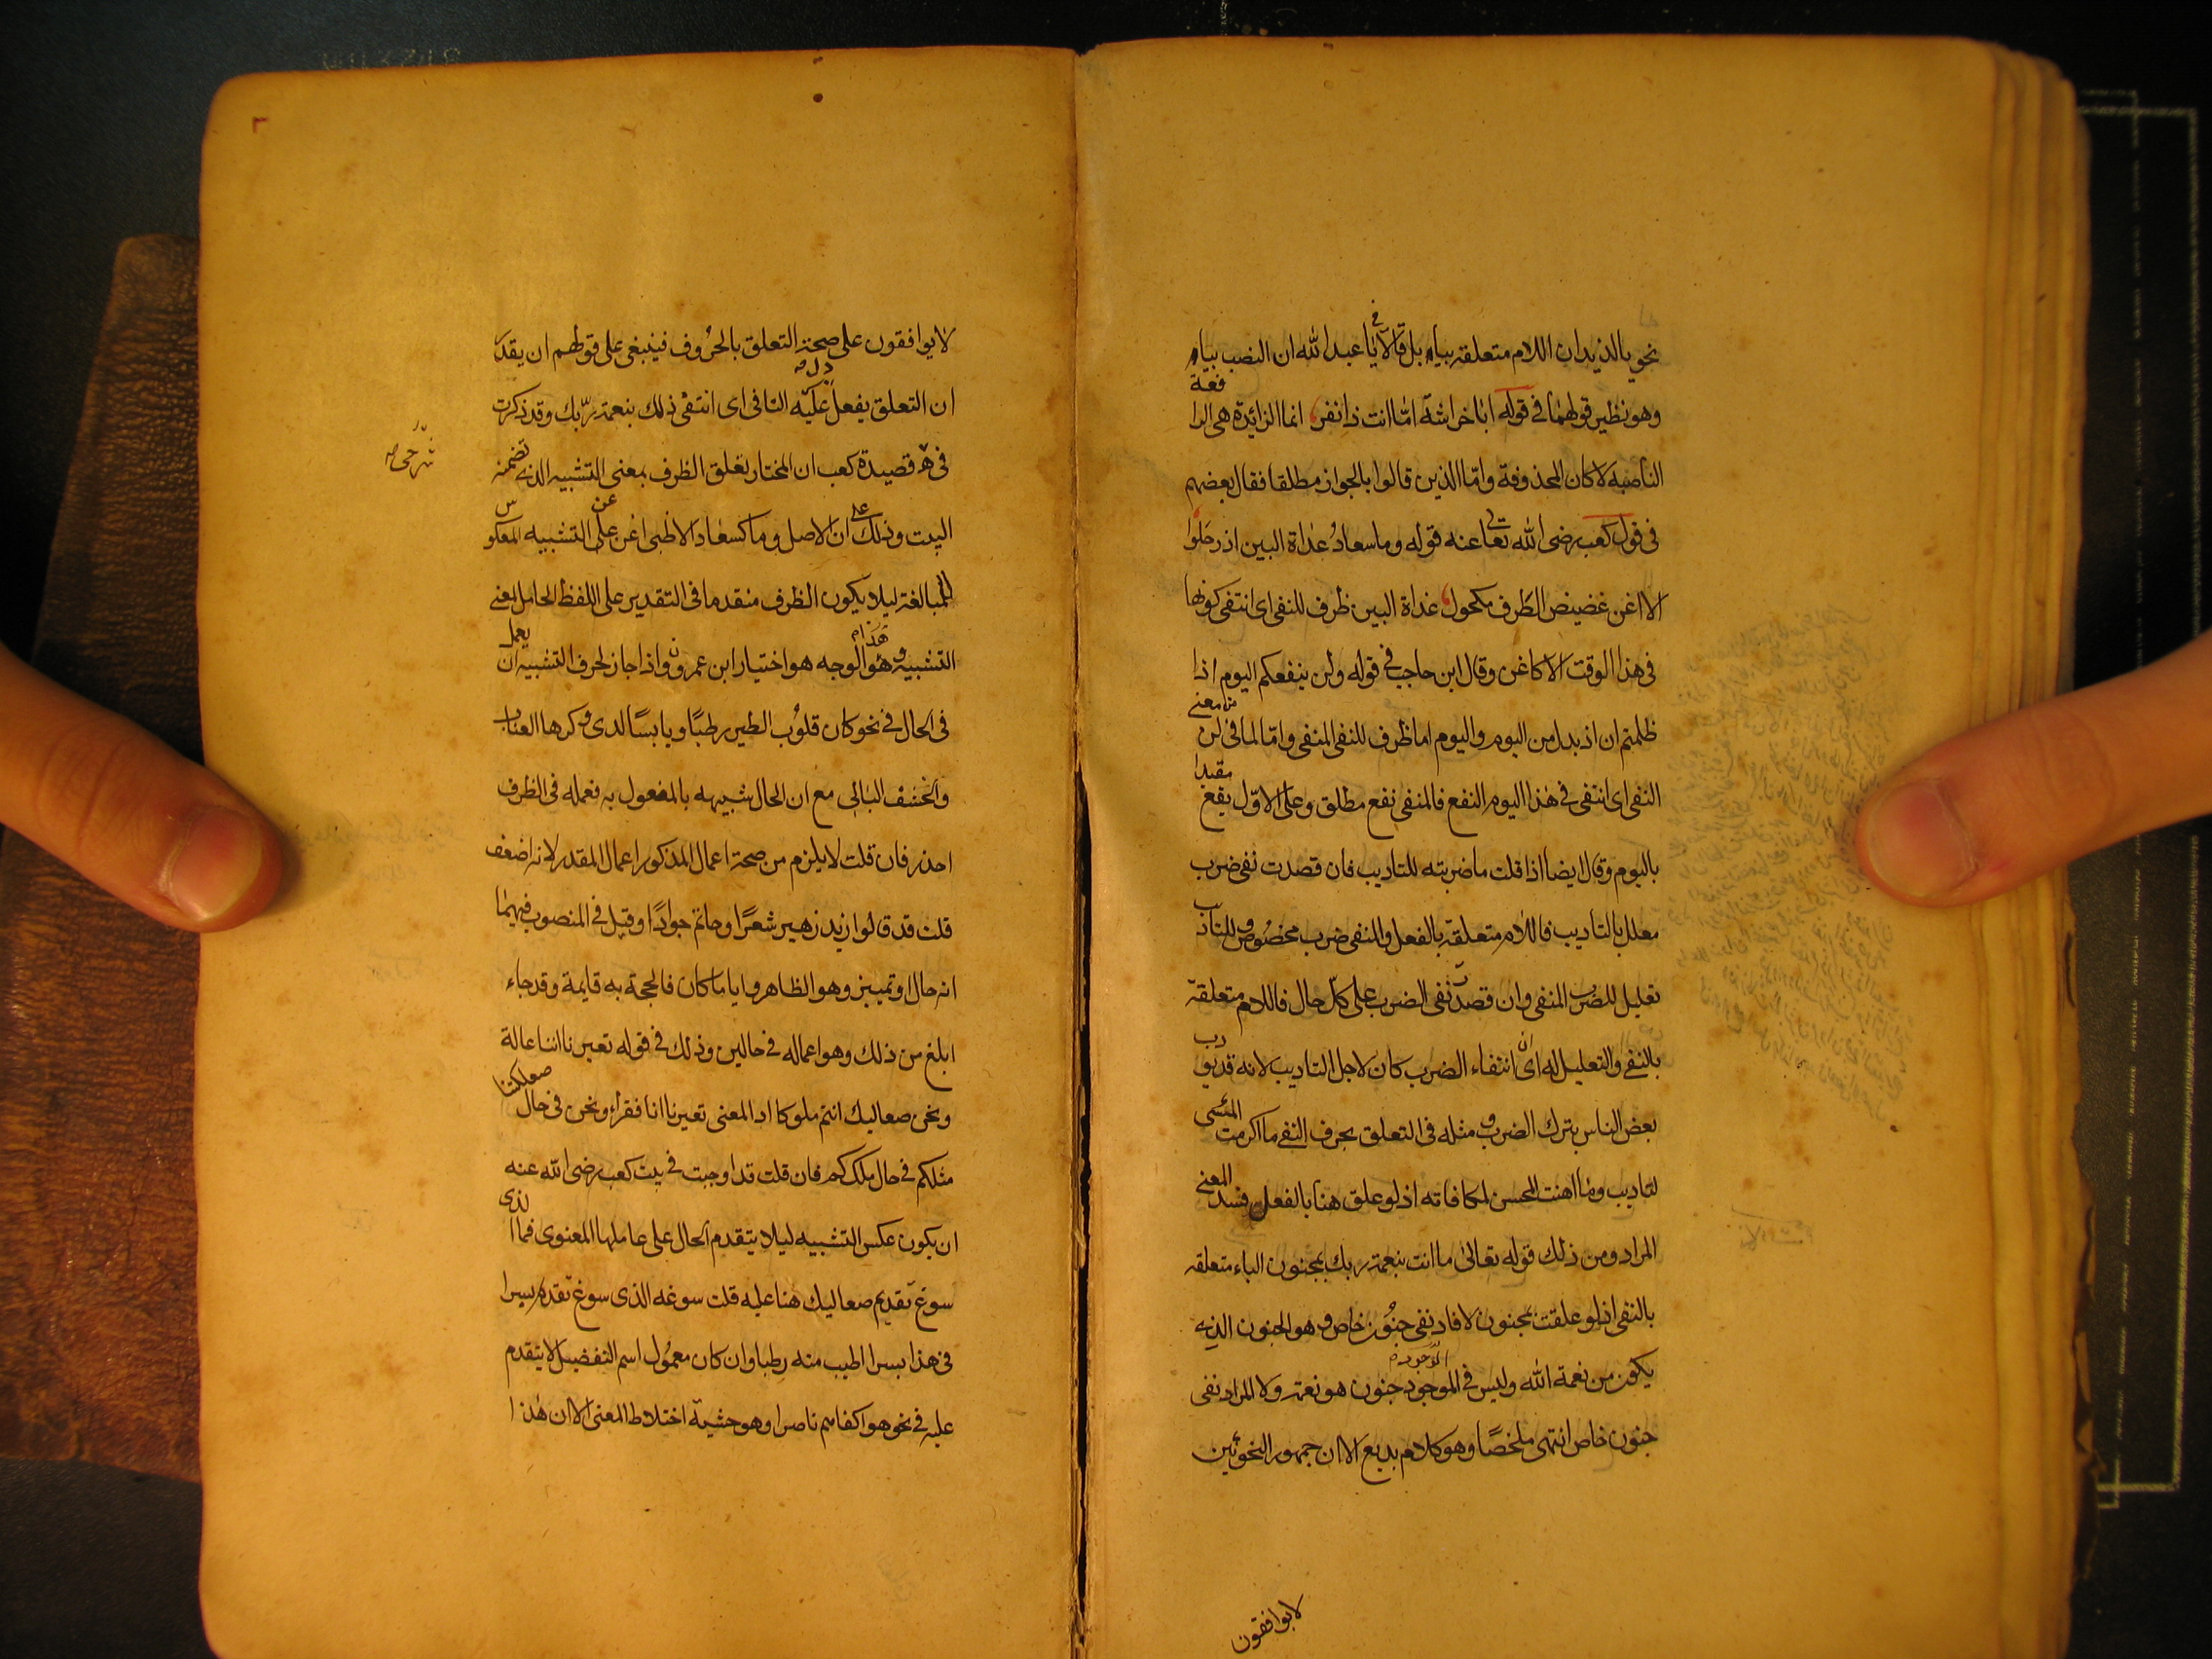 نحو يا لزيد ان اللام متعلقة بياء بل قالا في يا عبد الله ان النصب بياء
وهو نظير قولهما في قوله ابا خراشة امّا انت ذا نفر انما الزائدة هى الرافعة
الناصبة لا كان المحذوفة وامّا الذين قالوا بالجواز مطلقا فقال بعضهم
فى قول كعب رضى الله تعالى عنه قوله وما سعادُ غداة البين اذ رَحَلُوا
الا اغن غضيض الطرف مكحول غداة البين ظرف للنفى اى انتفى كونها
فى هذا الوقت الا كاغن وقال ابن حاجب في قوله ولن ينفعكم اليوم اذا
ظلمتم ان اذ بدل من اليوم واليوم اما ظرف للنفع المنفى وامّا لما فى لن من معنى
النفى اى انتفى في هذا اليوم النفع فالمنفى نفع مطلق وعلى الاوّل نفع مقيدا
باليوم وقال ايضا اذا قلت ما ضربته للتاديب فان قصدت نفى ضرب
معلل بالتأديب فاللام متعلقة بالفعل والمنفى ضرب مخصُوص وللتاديب
تعليل للضرب المنفى وان قصدت نفى الضرب على كلّ حال فاللام متعلقة
بالنفى والتعليل له اى ان انتفاء الضرب كان لاجل التاديب لانه قد يودب
بعض الناس بترك الضرب ومثله فى التعلق بحرف النفى ما اكرمت المسى
لتاديب وما اهنت المحسن لمكافاته اذ لو علق هنا بالفعل فسد المعنى
المراد ومن ذلك قوله تعالى ما انت بنعمة ربك بمجنون الباء متعلقة
بالنفى اذ لو علقت بمجنون لافاد نفى جنُون خاص وهو الجنون الذى
يكون من نعمة الله وليس في الموجود جنون هو نعمة ولا المراد نفى
جنون خاص انتهى ملخصًا وهو كلام بديع الا ان جمهور النحويّين
لا يوافقون
٣
لا يوافقون على صحة التعلق بالحرُوف فينبغى على قولهم ان يقدّر
ان التعلق بفعل دل عليّه النافى اى انتفى ذلك بنعمة ربّك وقد ذكرت
فى شرحى قصيدة كعب ان المختار تعلق الظرف بمعنى التشبيه الذى تضمنه
البيت وذلك على ان الاصل وما كسعاد الا ظبى اغن على التشبيه المعكوس
للمبالغة ليلا يكون الظرف متقدما فى التقدير على اللفظ الحامل لمعنى
التشبيه وهذا الوجه هو اختيار ابن عمرون واذا جاز لحرف التشبيه ان يعمل
فى الحال في نحو كان قلوُب الطير رطبًا ويابسًا لدى وكرها العناب
والخشف البالى مع ان الحال شبيهه بالمفعول به فعمله فى الظرف
اجدر فان قلت لا يلزم من صحة اعمال المذكور اعمال المقدر لانه اضعف
قلت قد قالوا زيد زهير شعرًا وحاتم جوادًا وقيل في المنصوب فيهما
انه حال او تمييز وهو الظاهر وايا ما كان فالحجة به قايمة وقد جاء
ابلغ من ذلك وهو اعماله في حالين وذلك في قوله تعيرنا اننا عالة
ونحن صعاليك انتم ملوكا اذ المعنى تعيرنا انا فقراء ونحن فى حال صعلكتنا
مثلكم في حال ملككم فان قلت قد اوجبت في بيت كعب رضى الله عنه
ان يكون عكس التشبيه ليلا يتقدم الحال على عاملها المعنوى فما الذى
سوغ تقديم صعاليك هنا عليه قلت سوغه الذى سوغ تقدم بسرا
فى هذا بسرا اطيب منه رطبا وان كان معمُول اسم التفضيل لا يتقدم
عليه في نحو هو اكفاهم ناصرا وهو خشية اختلاط المعنى الا ان هٰذا